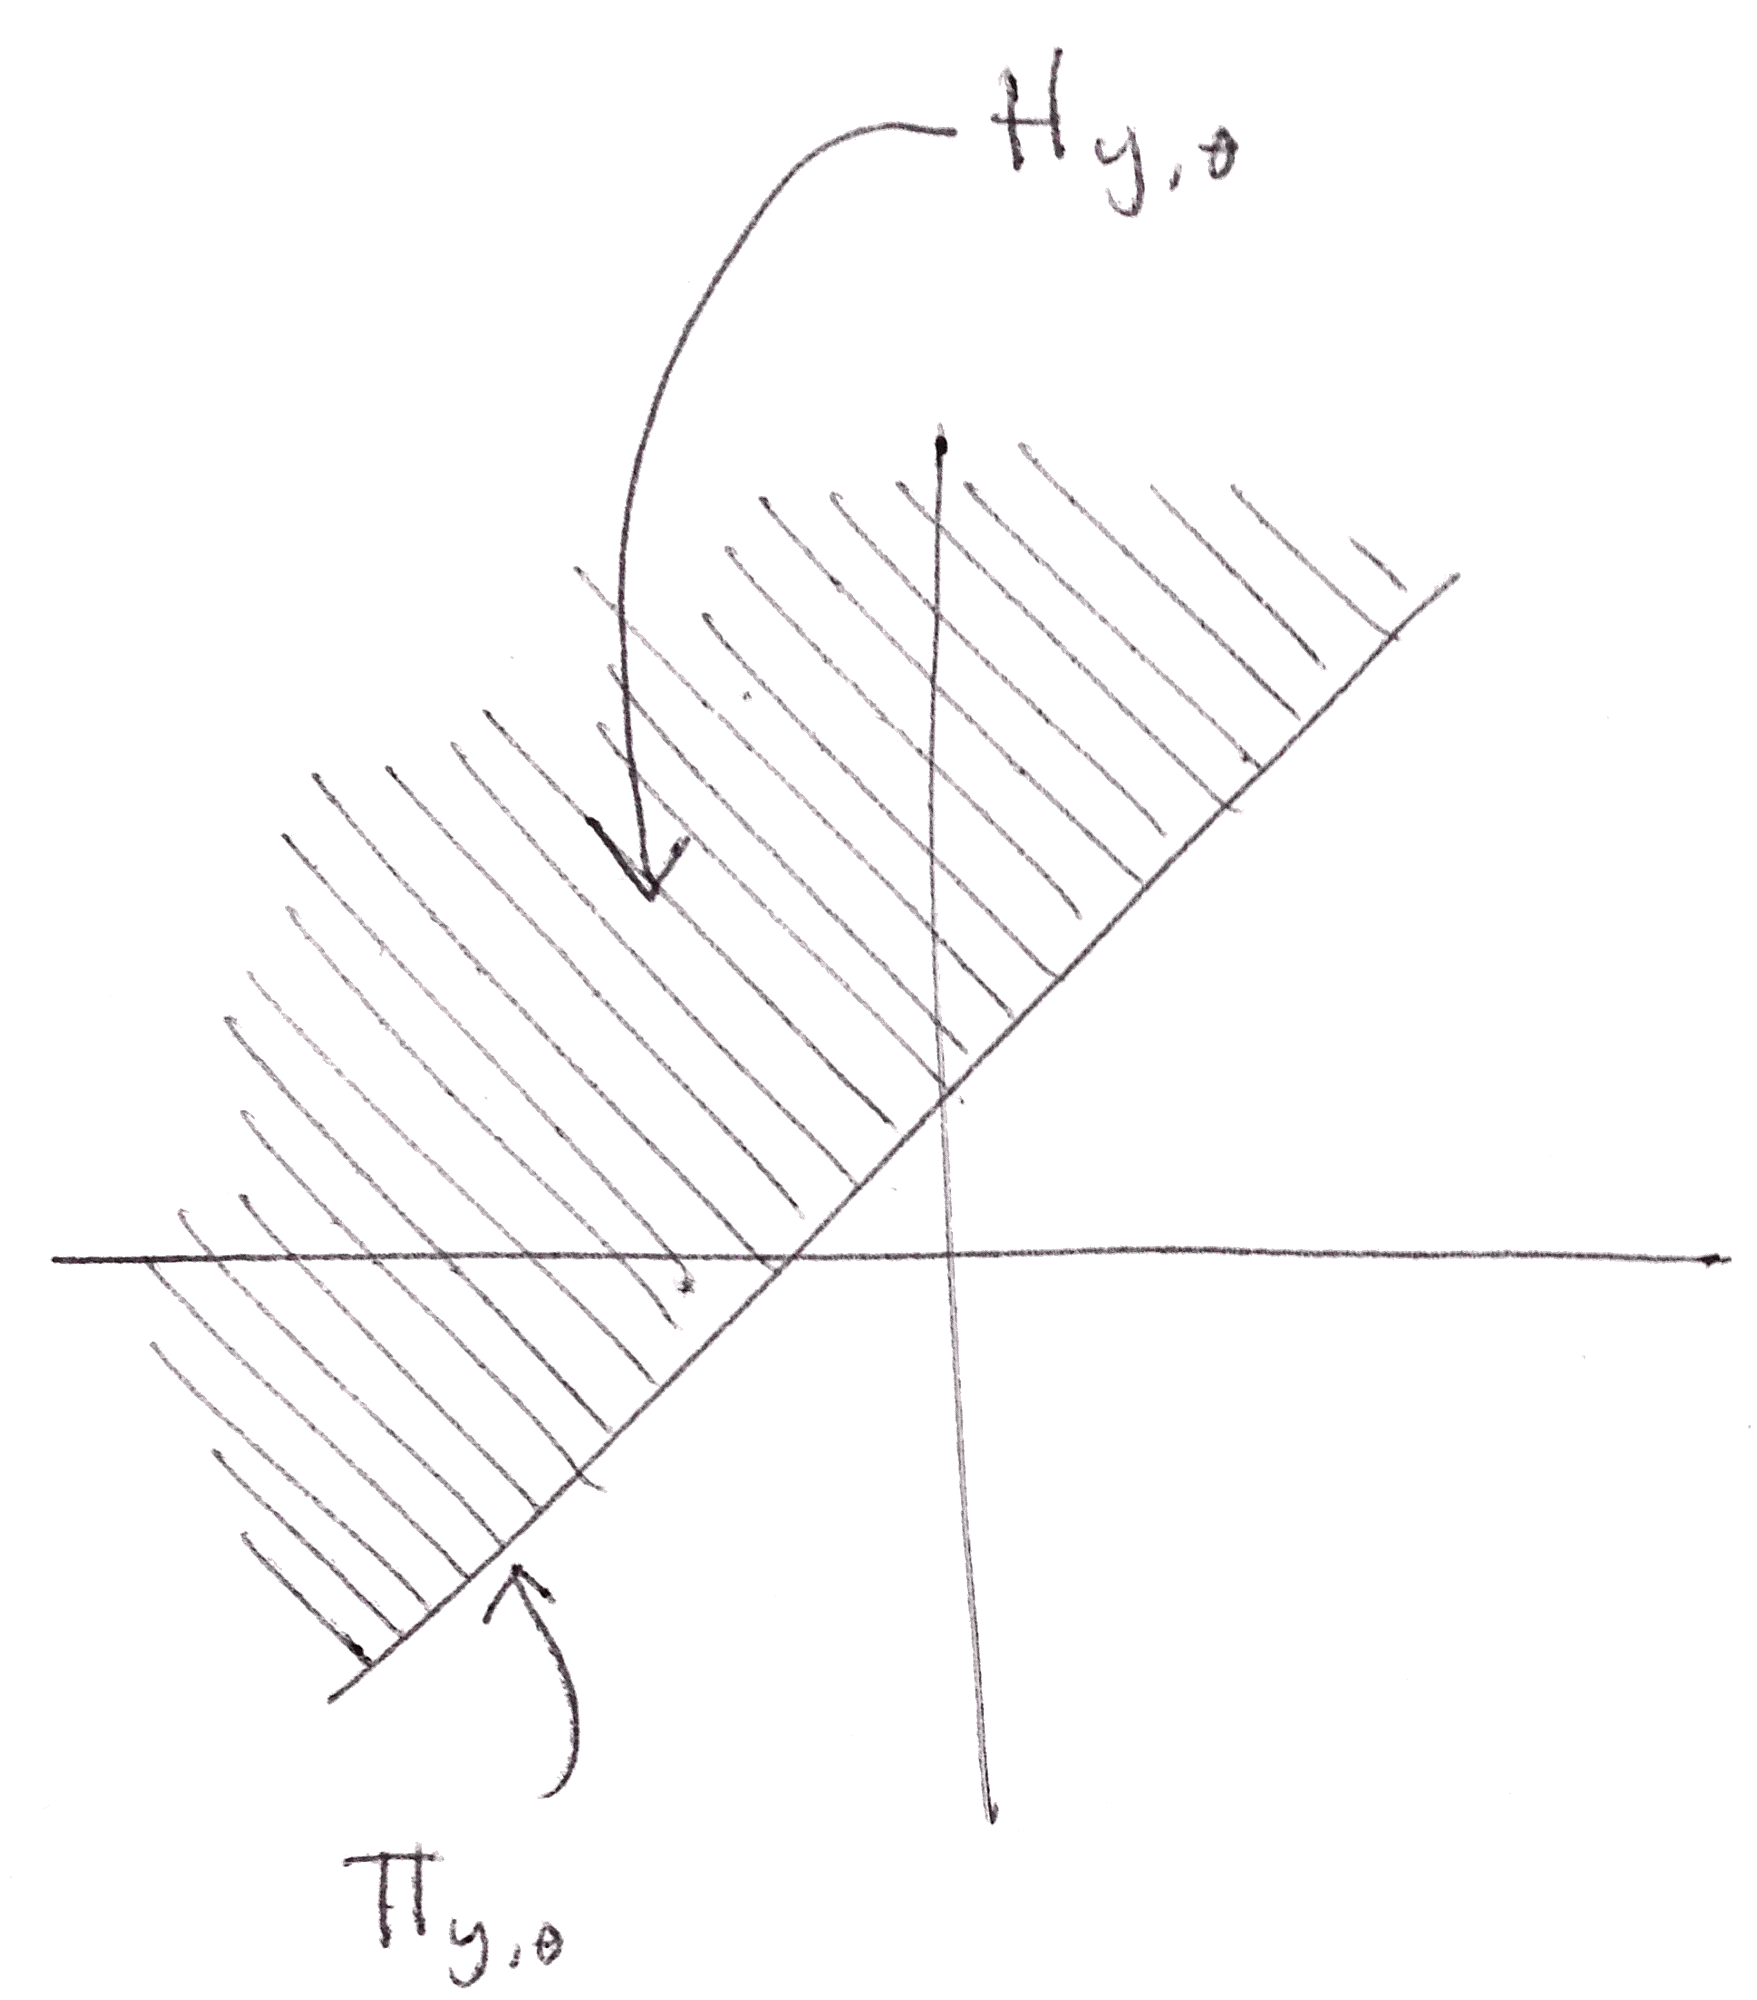 H y, θ
Π y, θ